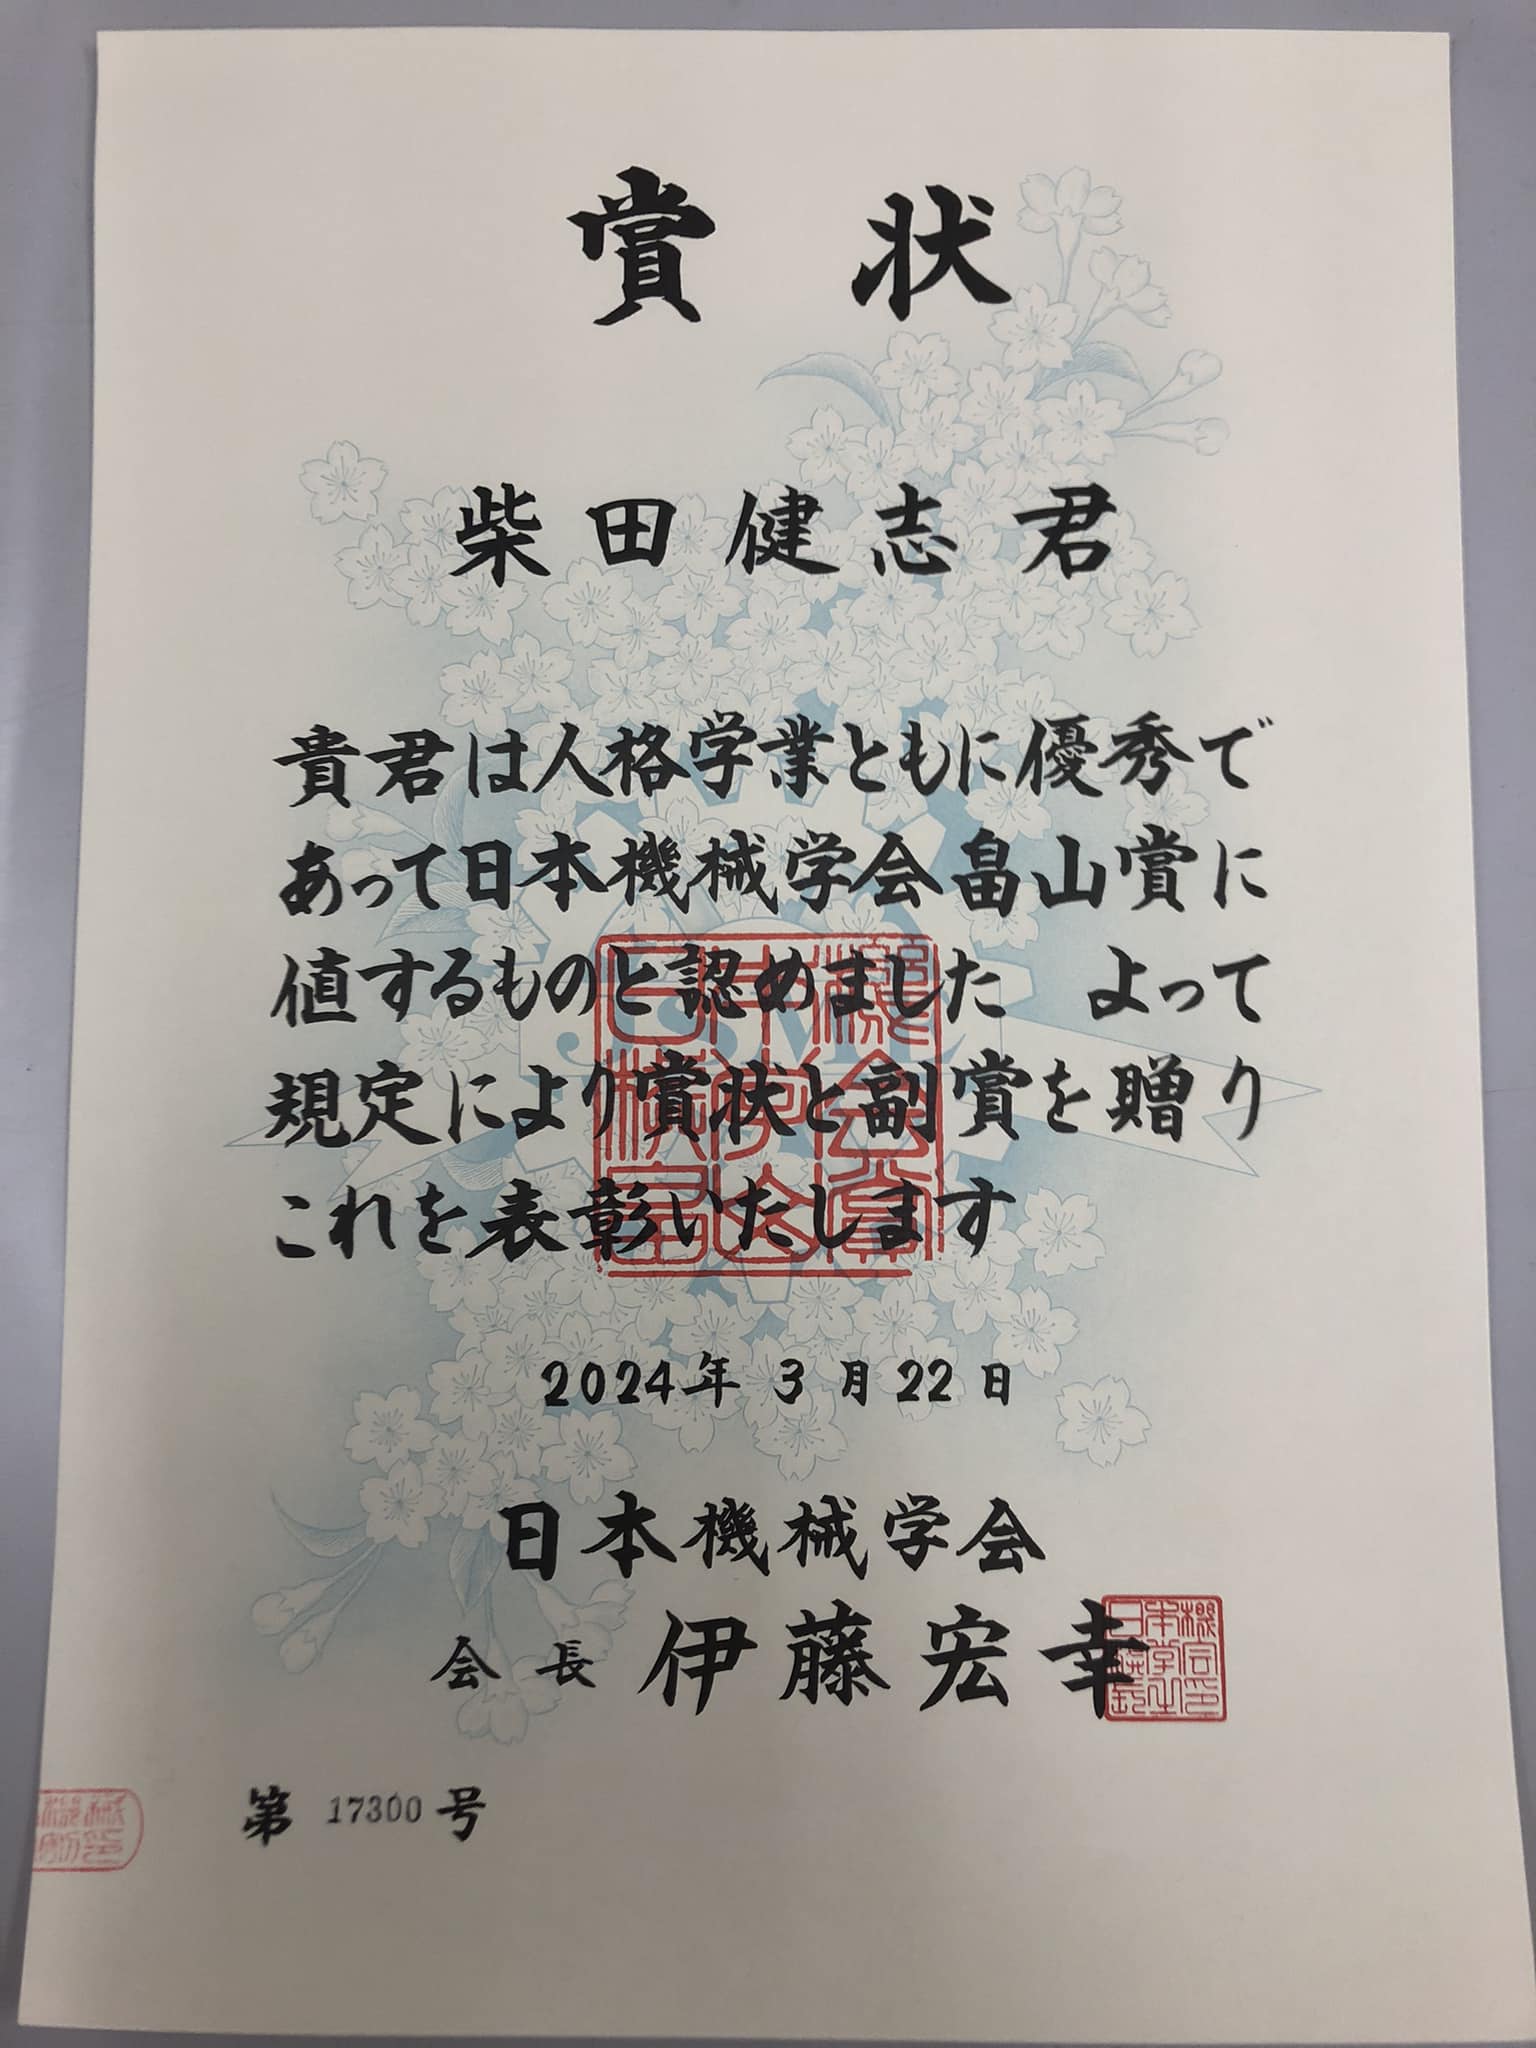 賞状
柴田健志君
貴君は人格学業ともに優秀で
あって日本機械学会畠山賞に
値するものと認めました　よって
規定により賞状と副賞を贈り
これを表彰いたします
2024年3月22日
日本機械学会
会長 伊藤宏幸
第 17300 号